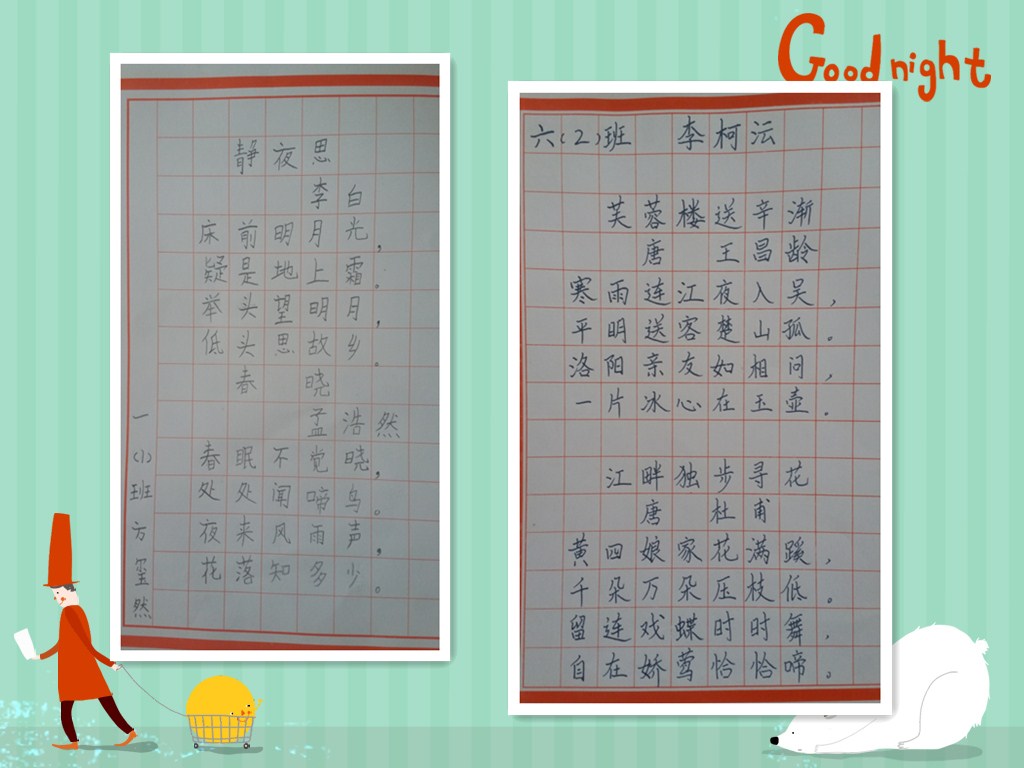 Good night
静夜思
李白
床前明月光，
疑是地上霜。
举头望明月，
低头思故乡。
春晓
孟浩然
春眠不觉晓，
处处闻啼鸟。
夜来风雨声，
花落知多少。
一(1)班方玺然
六(2)班 李柯沄
芙蓉楼送辛渐
唐 王昌龄
寒雨连江夜入吴，
平明送客楚山孤。
洛阳亲友如相问，
一片冰心在玉壶。
江畔独步寻花
唐 杜甫
黄四娘家花满蹊，
千朵万朵压枝低。
留连戏蝶时时舞，
自在娇莺恰恰啼。